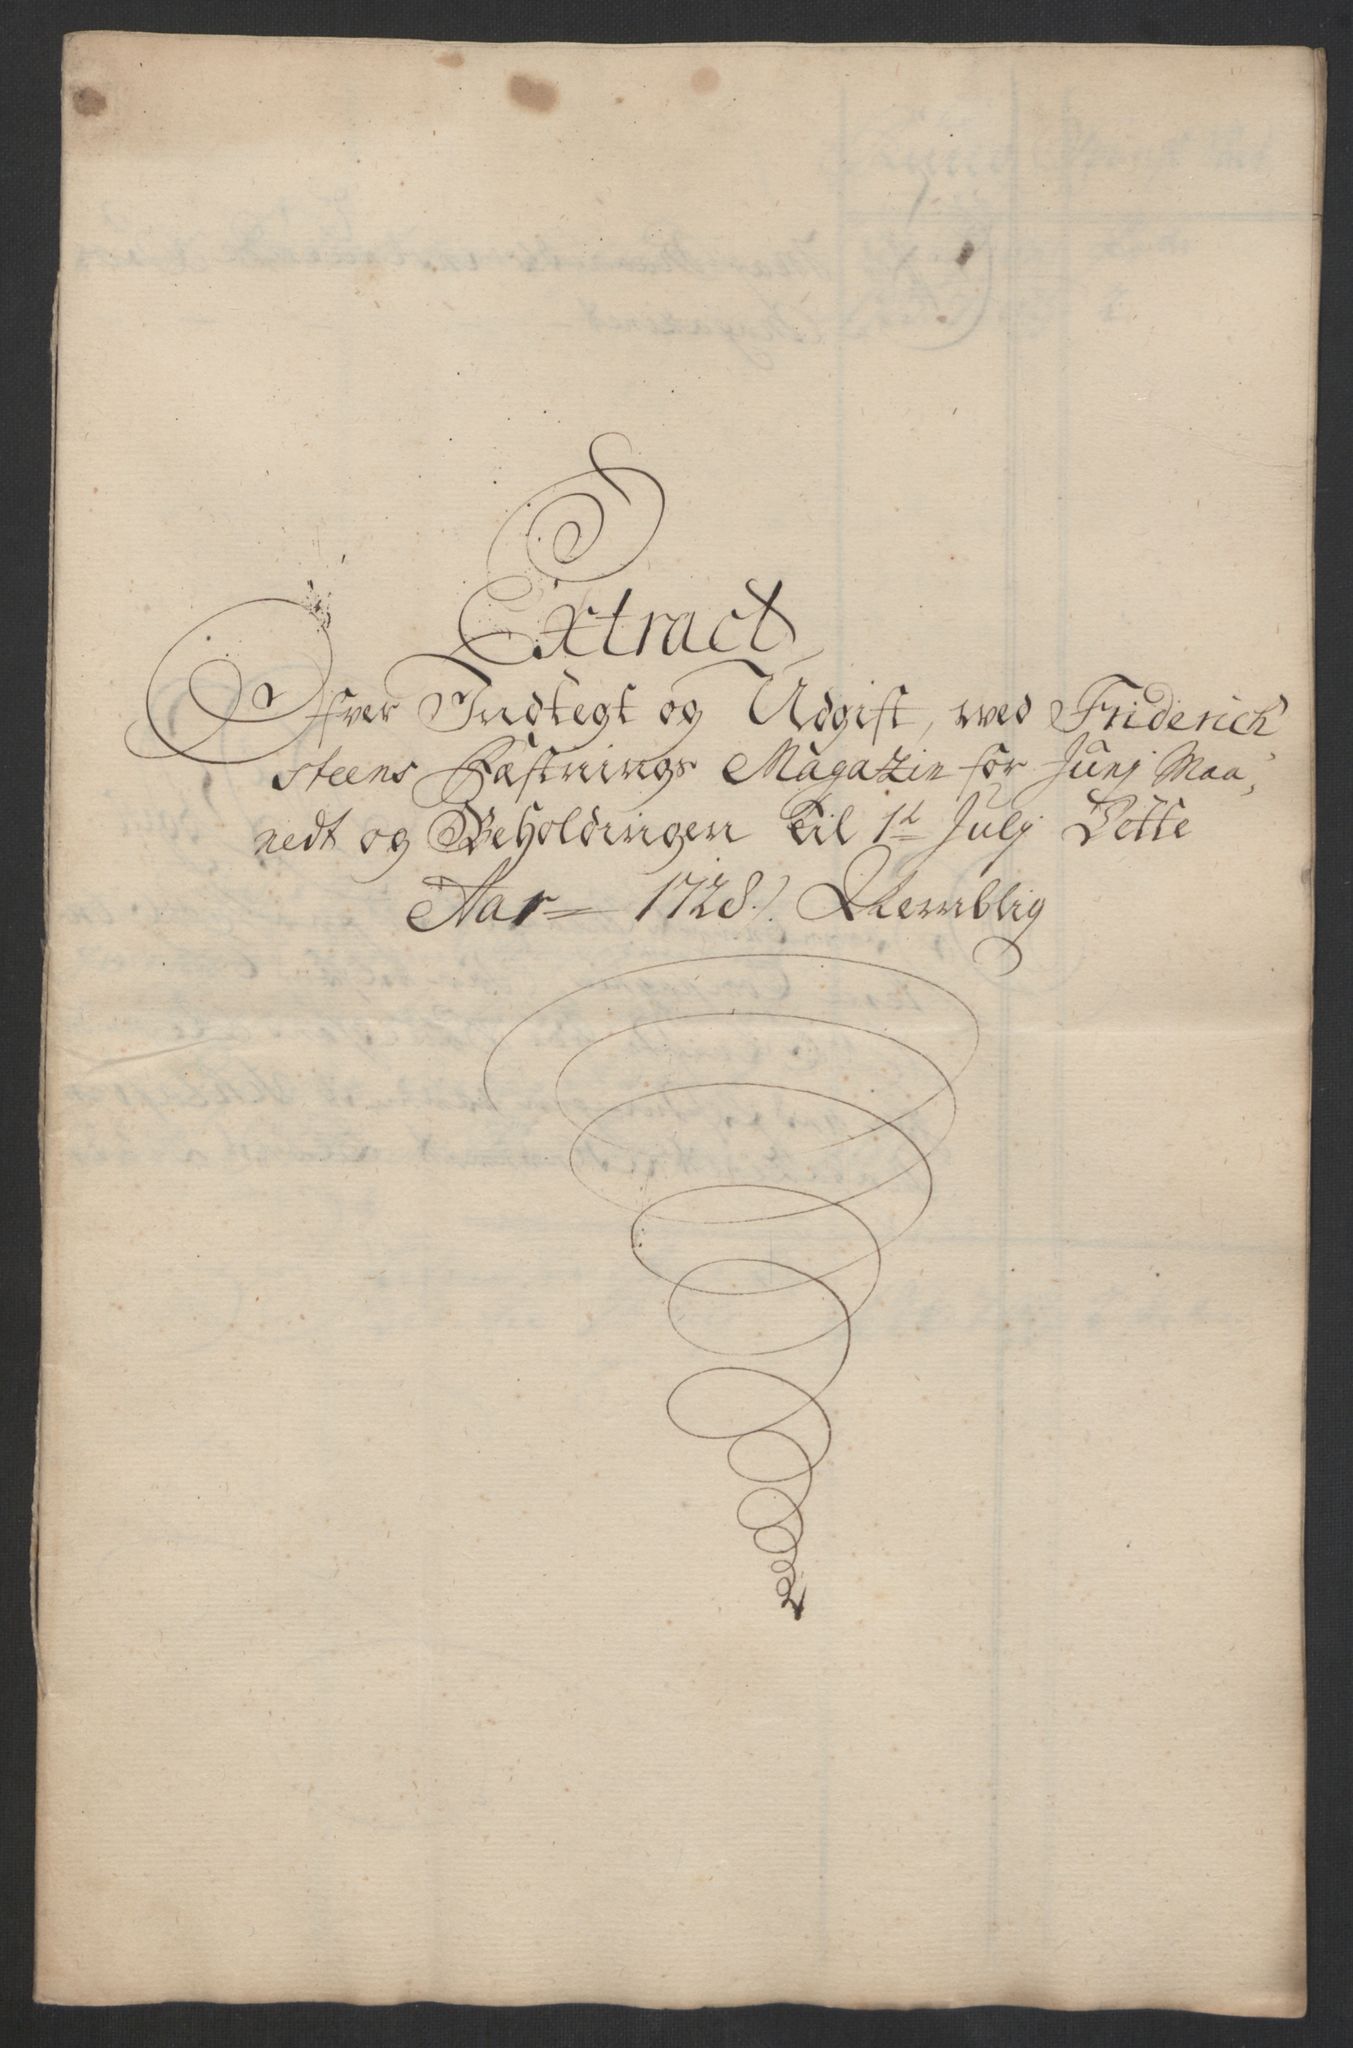 Extract
Ofver Indtegt og Udgift, wed Friderich
steens Fæstnings Magazin for Junj Maa,
nedt og Beholdingen til 1d Julj Dette
Aar = 1728. Nemblig